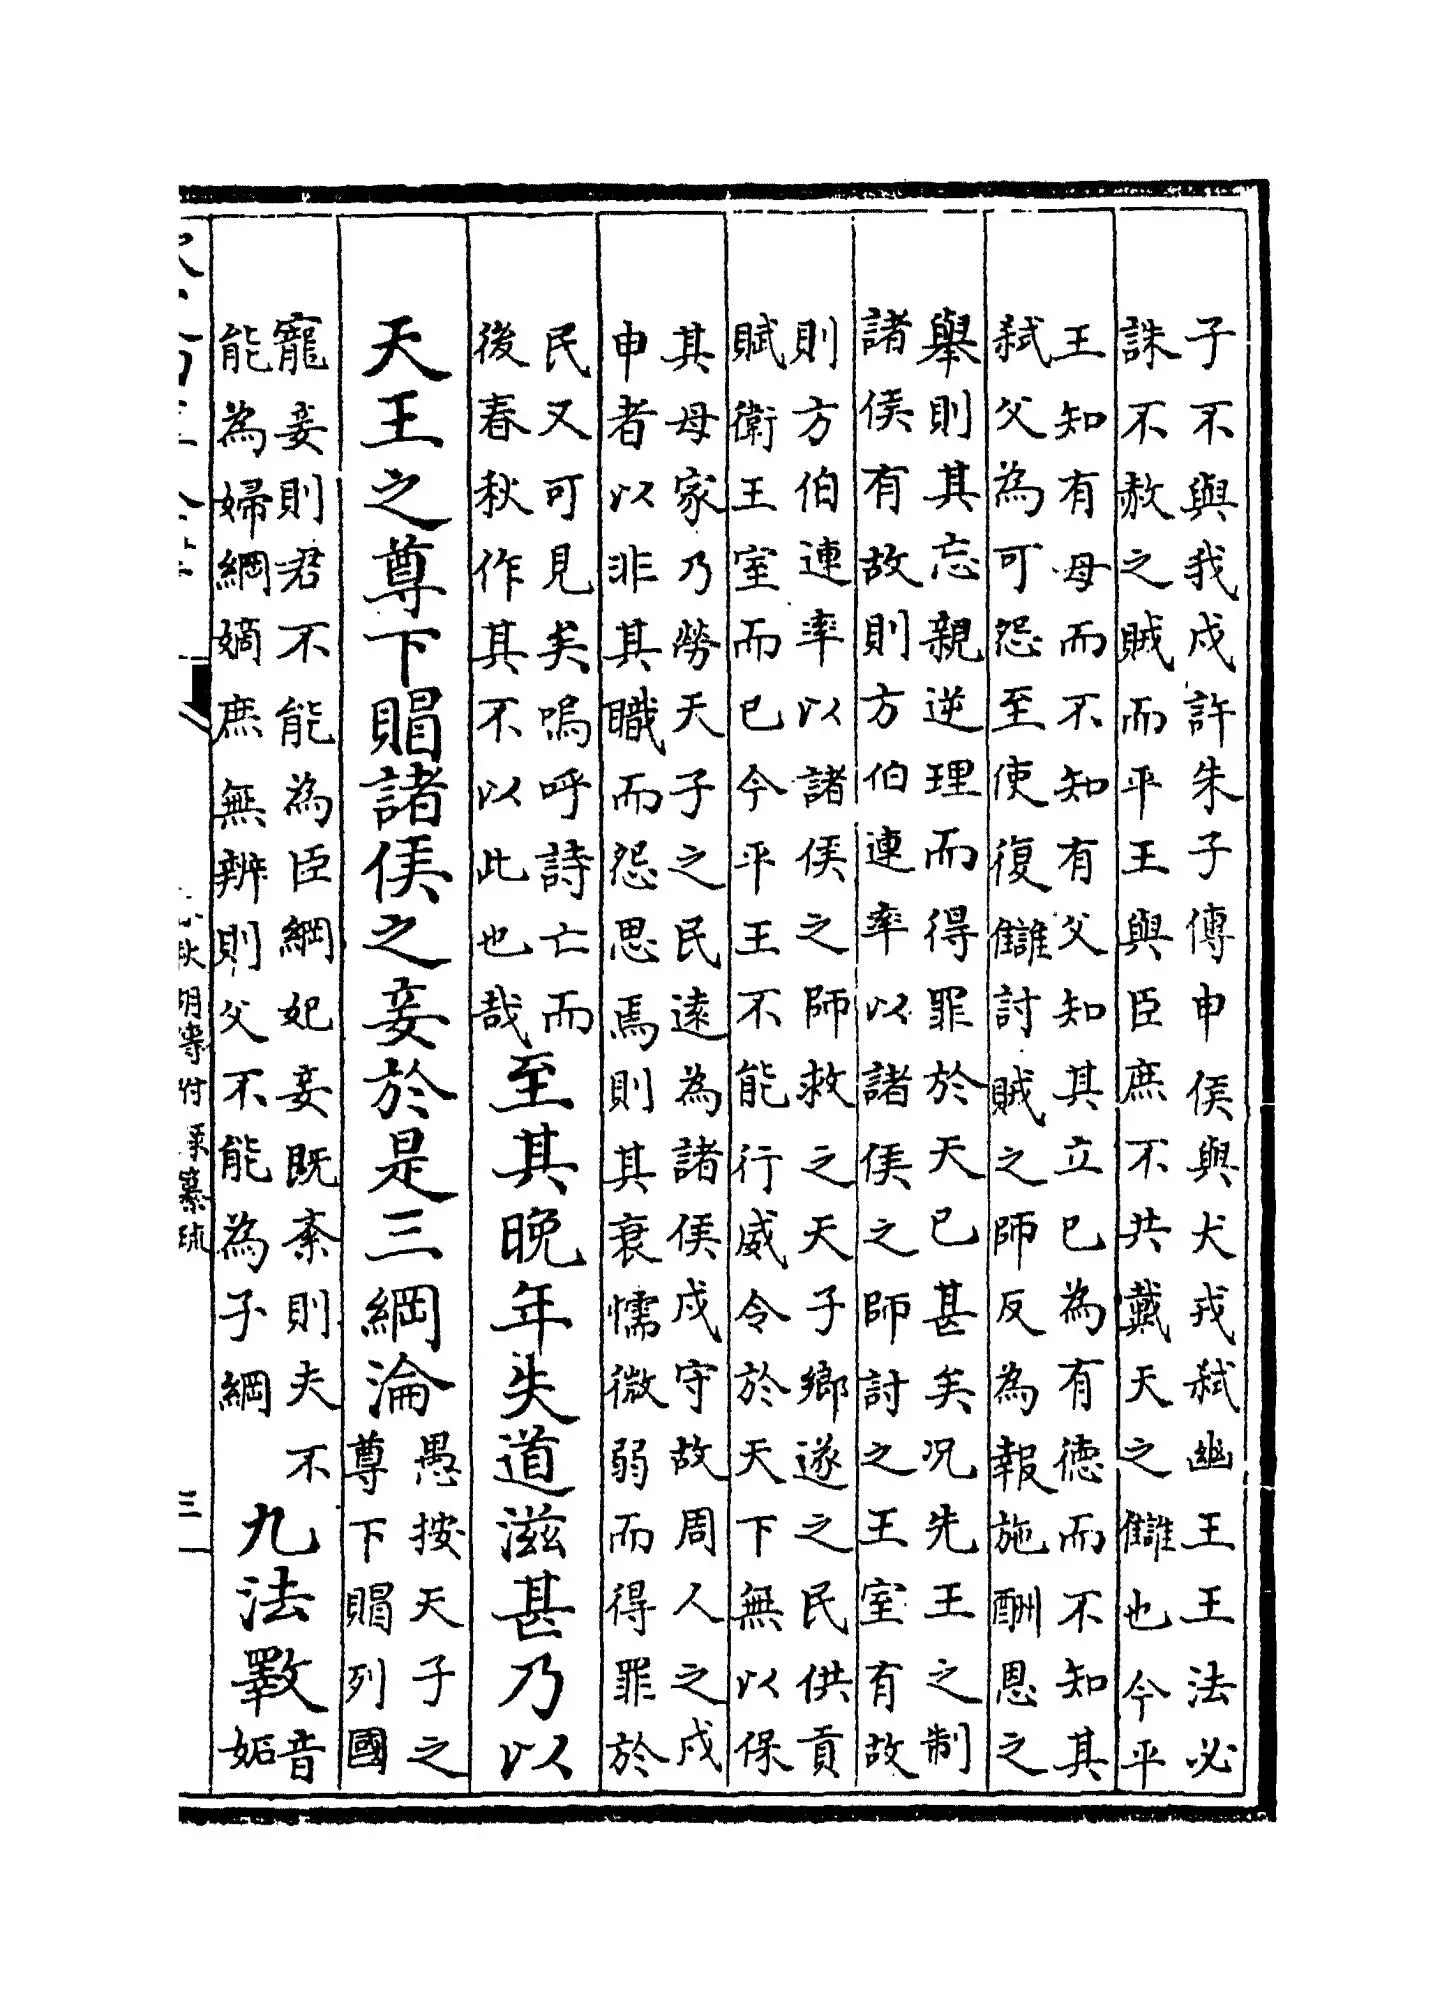 子不與我戍許朱子傳申侯與犬戎弑幽王王法必
誅不赦之賊而平王與臣庶不共戴天之讎也今平
王知有母而不知有父知其立已為有德而不知其
弑父為可怨至使復讎討賊之師反為報施酬恩之
舉則其忘親逆理而得罪於天已甚矣况先王之制
諸侯有故則方伯連率以諸侯之師討之王室有故
則方伯連率以諸侯之師救之天子鄉遂之民供貢
賦衛王室而已今平王不能行威令於天下無以保
其母家乃勞天子之民遠為諸侯戍守故周人之戍
申者以非其職而怨思焉則其衰懦微弱而得罪於
民又可見矣嗚呼詩亡而
後春秋作其不以此也哉
至其晚年失道滋甚乃以
天王之尊下賵諸侯之妾於是三綱淪
愚按天子之
尊下賵列國
寵妾則君不能為臣綱妃妾既紊則夫不
能為婦綱嫡庶無辨則父不能為子綱
九法斁
音
妬
三